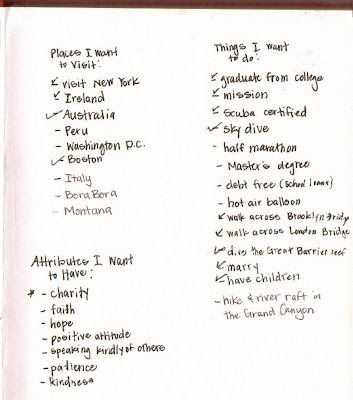 Places I want
to visit:
✓ visit New York
✓ Ireland
✓ Australia
- Peru
- Washington D.C.
✓ Boston
- Italy
- Bora Bora
- Montana
Attributes I Want
to Have:
* - charity
- faith
- hope
- positive attitude
- speaking kindly of others
- patience
- kindness
Things I want
to do:
✓ graduate from college
✓ mission
✓ Scuba certified
✓ sky dive
- half marathon
- Master's degree
- debt free (school loans)
- hot air balloon
✓ walk across Brooklyn Bridge
✓ walk across London Bridge
✓ dive the Great Barrier reef
✓ marry
✓ have children
- hike & river raft in
the Grand Canyon